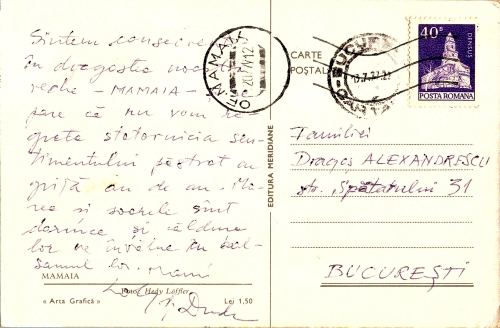 Sîntem consecve
în dragostea noa
veche - MAMAIA -
pare că nu vom re
greta statornicia sen-
timentului pastrat cu
grijă an de an. Ma-
rea și soarele sînt
darnice și căldura
lor ne învălue în bal-
samul lor.
MAMAIA
Foto: Hedy Löffler
« Arta Grafică » Lei 1,50
EDITURA MERIDIANE
OF. MAMAIA
CARTE
POȘTALĂ
BUCUR
40B
DENSUS
POSTA ROMANA
Familiei
Dragoș ALEXANDRESCU
str. Spătarului 31
BUCUREȘTI